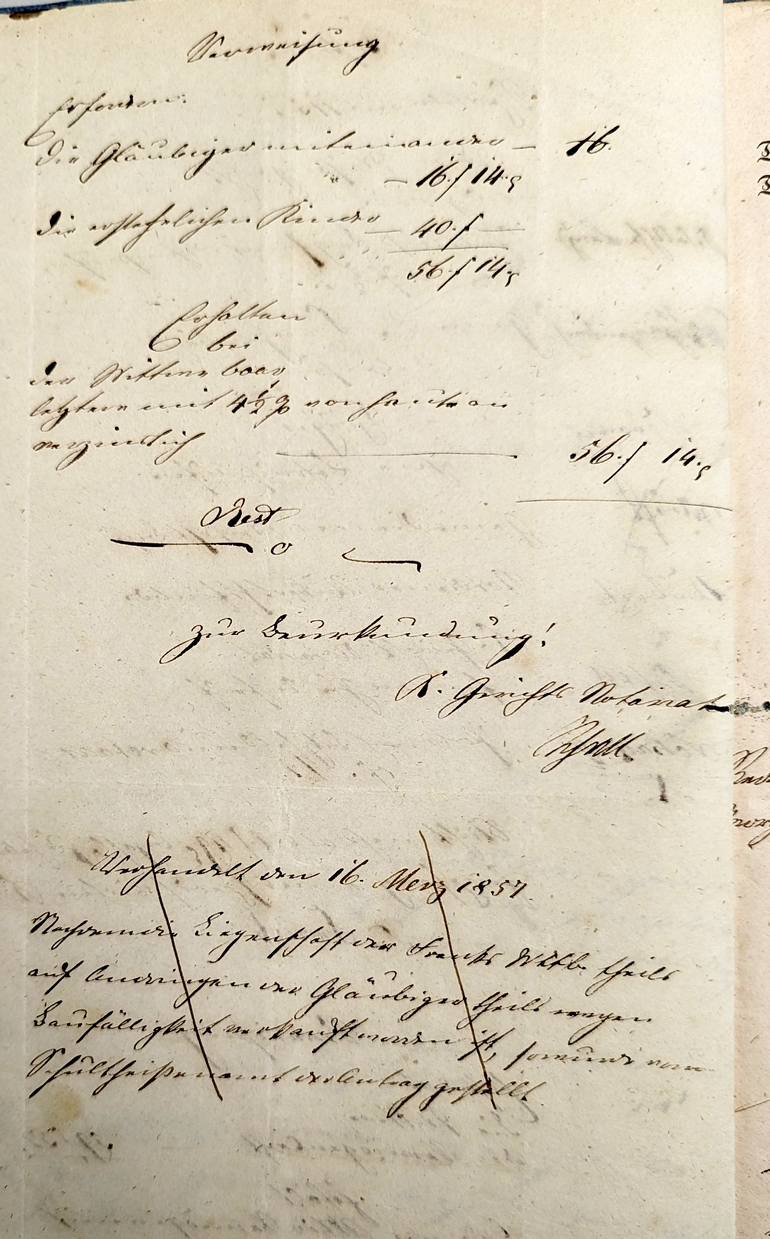 Verweisung
Erfordern:
die Gläubiger miteinander — 16.
— 16. f 14.
die erstehelichen Kinder — 40. f —
56. f 14.
Erhalten
bei
der Wittwe baar,
letztere mit 4½ % von heute an
verzinslich — 56. f 14.
Rest
— 0 —
zur Beurkundung!
K. Gerichts Notariat
Scholl
Verhandelt den 16. Merz 1857.
Nachdem die Liegenschaft der Franks Wttb. theils
auf Andringen der Gläubiger theils wegen
Baufälligkeit verkauft worden ist, so wurde vom
Schultheißenamt der Antrag gestellt